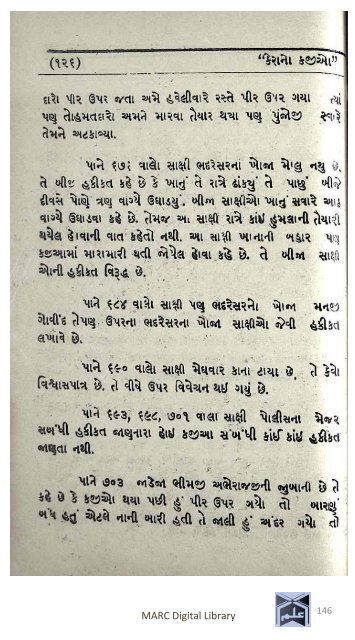 (૧૨૬) “કેરાનો કજીઓ”
દારો પીર ઉપર જતા અમે હવેલીવારે રસ્તે પીર ઉપર ગયા ત્યાં
પણ તોહમતદારો અમને મારવા તૈયાર થયા પણ પુંજોજી સ્વારે
તેમને અટકાવ્યા.
પાને ૬૭૬ વાલો સાક્ષી ભદરેસરનાં ખોજા મેણુ નથુ છે.
તે બીજી હકીકત કહે છે કે ખાનું તે રાત્રે ઢાંક્યું તે પાછું બીજે
દીવસે પોણે ત્રણ વાગ્યે ઉઘાડયું. બીજા સાક્ષીઓ ખાનું સવારે આઠ
વાગ્યે ઉઘાડવા કહે છે. તેમજ આ સાક્ષી રાત્રે કાંઇ હુમલાની તૈયારી
થયેલ હોવાની વાત કહેતો નથી. આ સાક્ષી ખાનાની બહાર પણ
કજીઆમાં મારામારી થતી જોયેલ હોવા કહે છે. તે બીજા સાક્ષી
ઓની હકીકત વિરૂદ્ધ છે.
પાને ૬૮૪ વારો સાક્ષી પણ ભદરેસરનો ખોજા મનજી
ગોવીંદ તેપણ ઉપરના ભદરેસરના ખોજા સાક્ષીઓ જેવી હકીકત
લખાવે છે.
પાને ૬૯૦ વાલો સાક્ષી મેઘવાર કાના ટાયા છે. તે કેવો
વિશ્વાસપાત્ર છે. તે વીષે ઉપર વિવેચન થઇ ગયું છે.
પાને ૬૯૩, ૬૯૮, ૭૦૧ વાલા સાક્ષી પોલીસના મેજર
સબંધી હકીકત જાણનારા હોઇ કજીઆ સંબંધી કાંઈ કાંઇ હકીકત
જાણતા નથી.
પાને ૭૦૩ જાડેજા ભીમજી અભેરાજજીની જુબાની છે તે
કહે છે કે કજીઓ થયા પછી હું પીર ઉપર ગયો તો બારણું
બંધ હતું એટલે નાની બારી હતી તે જાલી હું અંદર ગયો તો
MARC Digital Library
علم
146